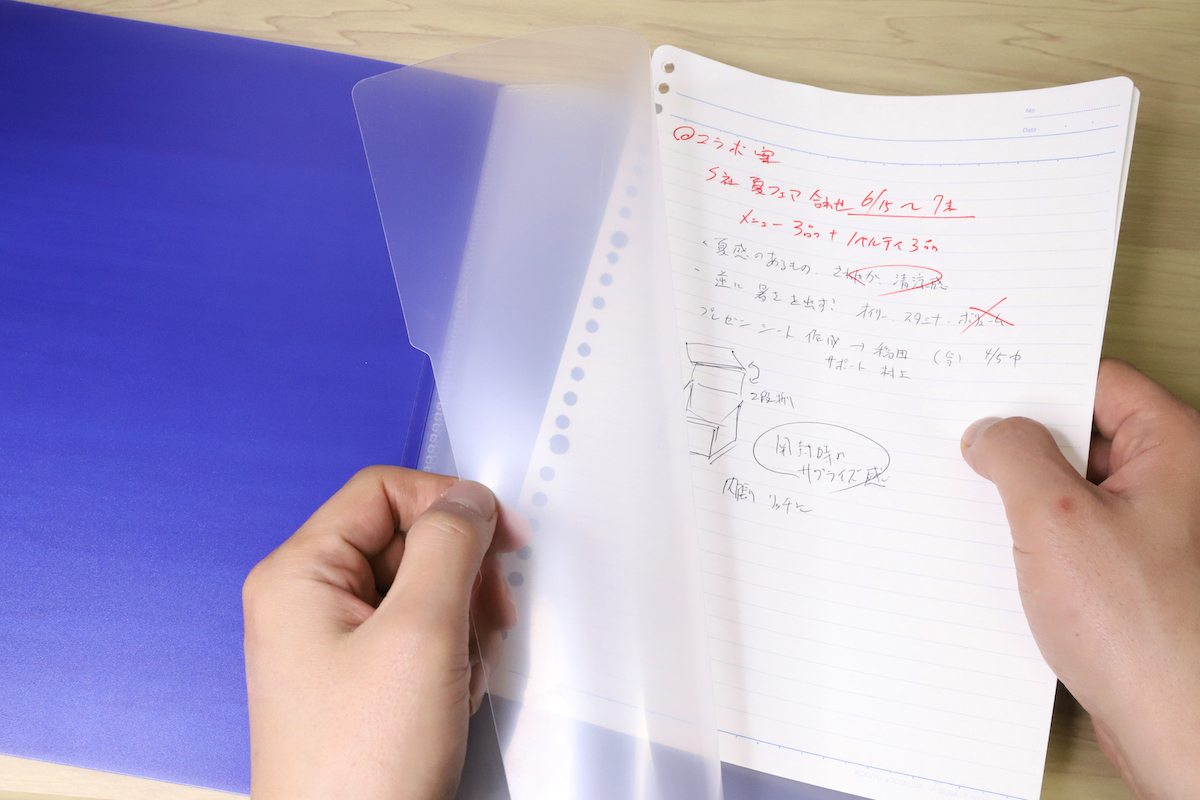 No.
Date
@コラボ案
S社 夏フェア 合わせ 6/15〜7末
メニュー 3品 + ノベルティ 3品
・夏感のあるもの、さわやか、清涼感
・逆に 暑さを出す? オイリー スタミナ ボリューム
プレゼンシート 作成 → 稲田 (今) 4/5中
サポート 村上
2段折り
開封時の
サプライズ感
内張り リッチに